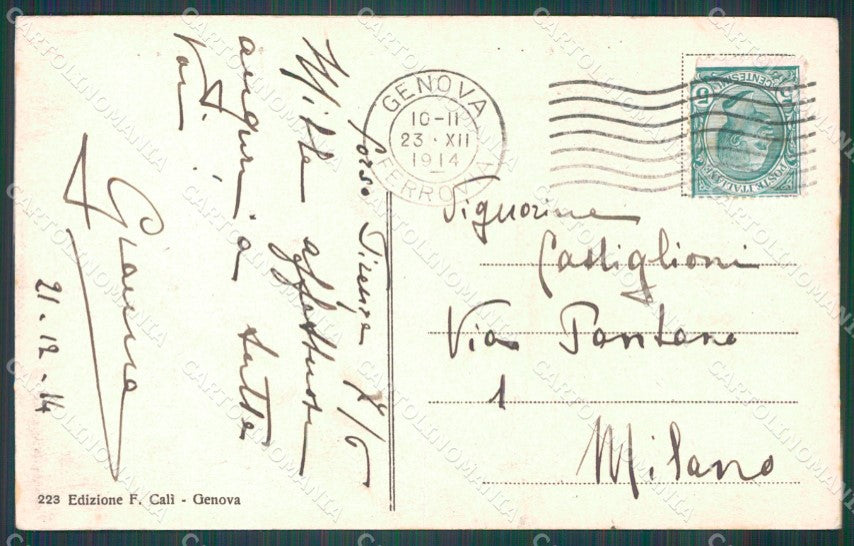 Corso Firenze 7/6
Mille affettuosi
auguri a tutte
voi!
Gianna
21-12-14
GENOVA
10-11
23·XII
1914
FERROVIA
POSTE ITALIANE
CENTES.
5
Signorine
Castiglioni
Via Pontano
1
Milano
223 Edizione F. Calì - Genova
CARTOLINOMANIA